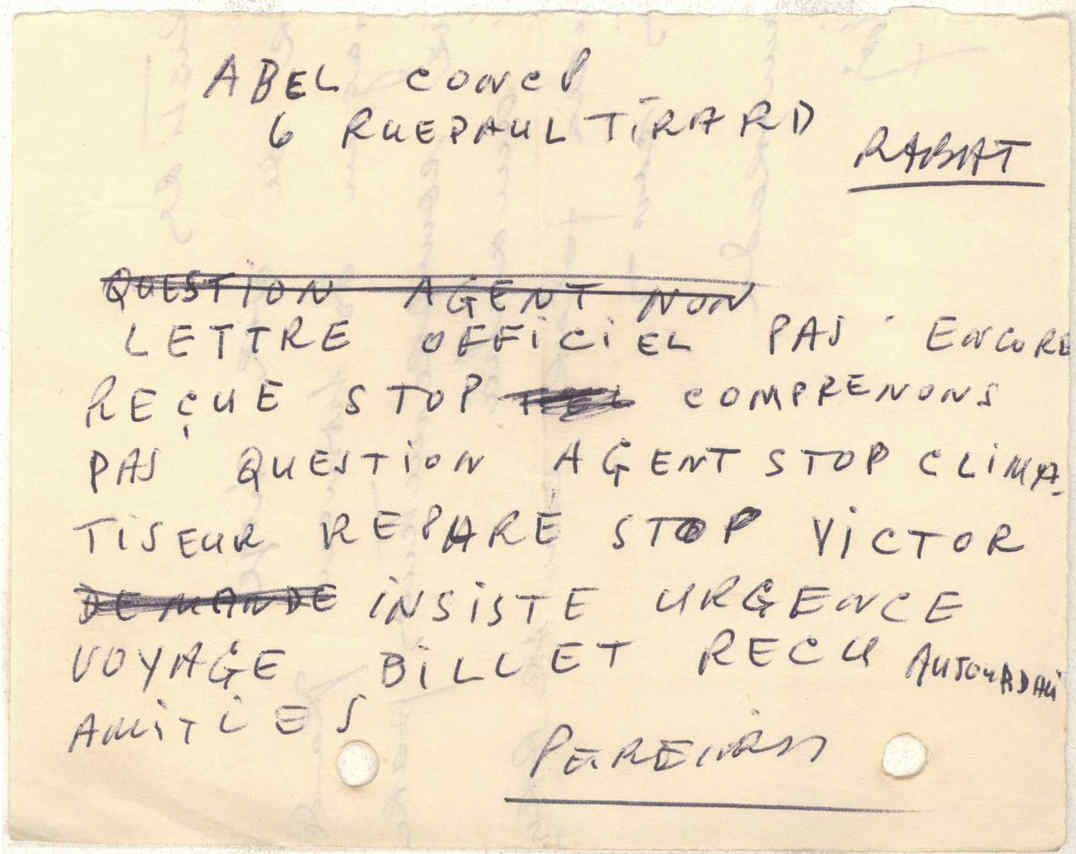 ABEL CONCP
6 RUE PAUL TIRARD
RABAT
QUESTION AGENT NON
LETTRE OFFICIEL PAS ENCORE
REÇUE STOP COMPRENONS
PAS QUESTION AGENT STOP CLIMA-
TISEUR REPARÉ STOP VICTOR
DEMANDE INSISTE URGENCE
VOYAGE BILLET RECU AUJOURDHUI
AMITIES